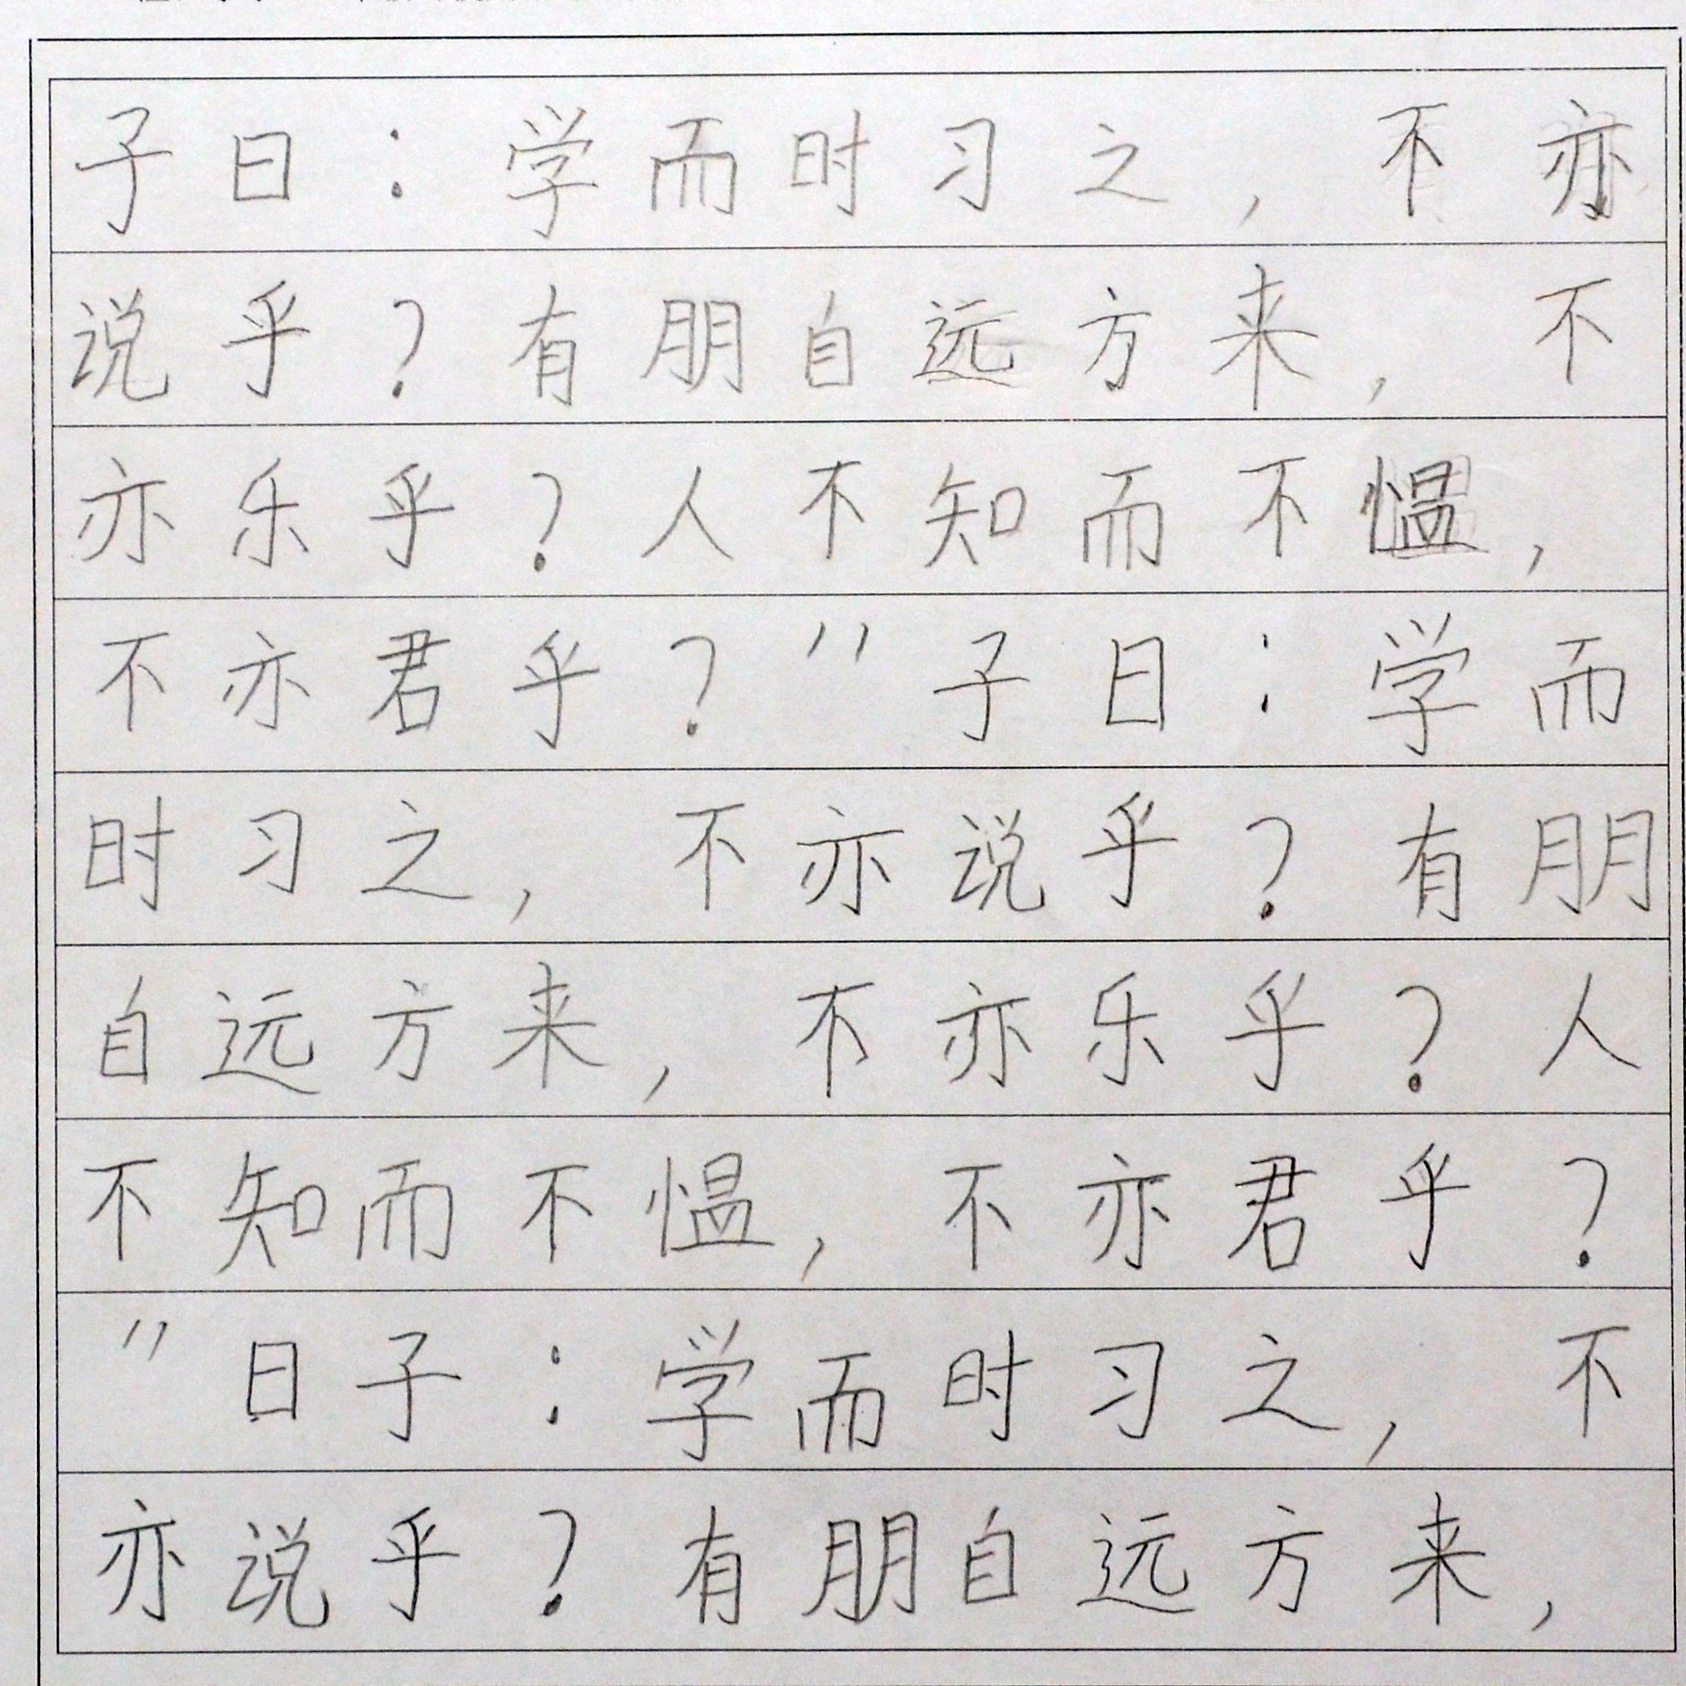 子曰：学而时习之，不亦
说乎？有朋自远方来，不
亦乐乎？人不知而不愠，
不亦君乎？”子曰：学而
时习之，不亦说乎？有朋
自远方来，不亦乐乎？人
不知而不愠，不亦君乎？
”日子：学而时习之，不
亦说乎？有朋自远方来，